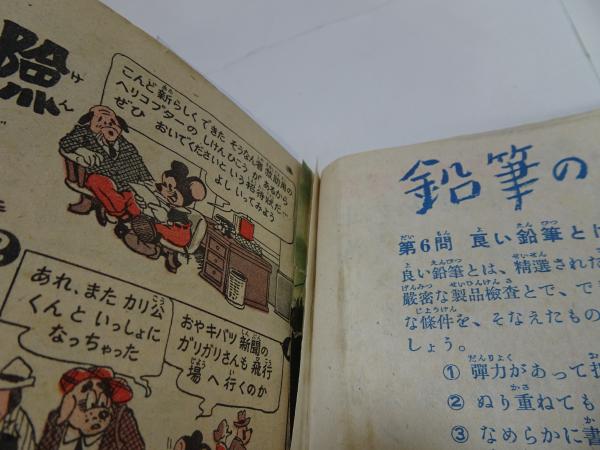 険
けん
こんど新らしくできたそうなん救助用の
ヘリコプターのしけんひこうがあるから
ぜひおいでくださいという招待状だ…
よしいってみよう
あれ、またカリ公
くんといっしょに
なっちゃった
おやキバツ新聞の
ガリガリさんも飛行
場へ行くのか
鉛筆の
第6問 良い鉛筆とは
良い鉛筆とは、精選された
厳密な製品検査とで、で
な条件を、そなえたもの
しょう。
① 弾力があって
② ぬり重ねても
③ なめらかに書